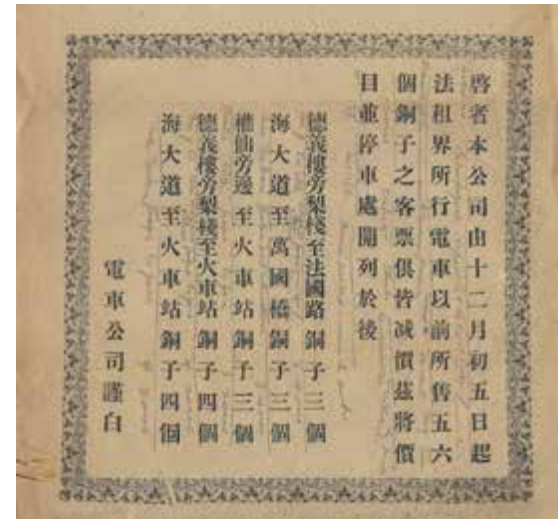 啓者本公司由十二月初五日起
法租界所行電車以前所售五六
個銅子之客票俱皆减價茲將價
目並停車處開列於後
德義樓旁梨棧至法國路銅子三個
海大道至萬國橋銅子三個
權仙旁邊至火車站銅子三個
德義樓旁梨棧至火車站銅子四個
海大道至火車站銅子四個
電車公司謹白